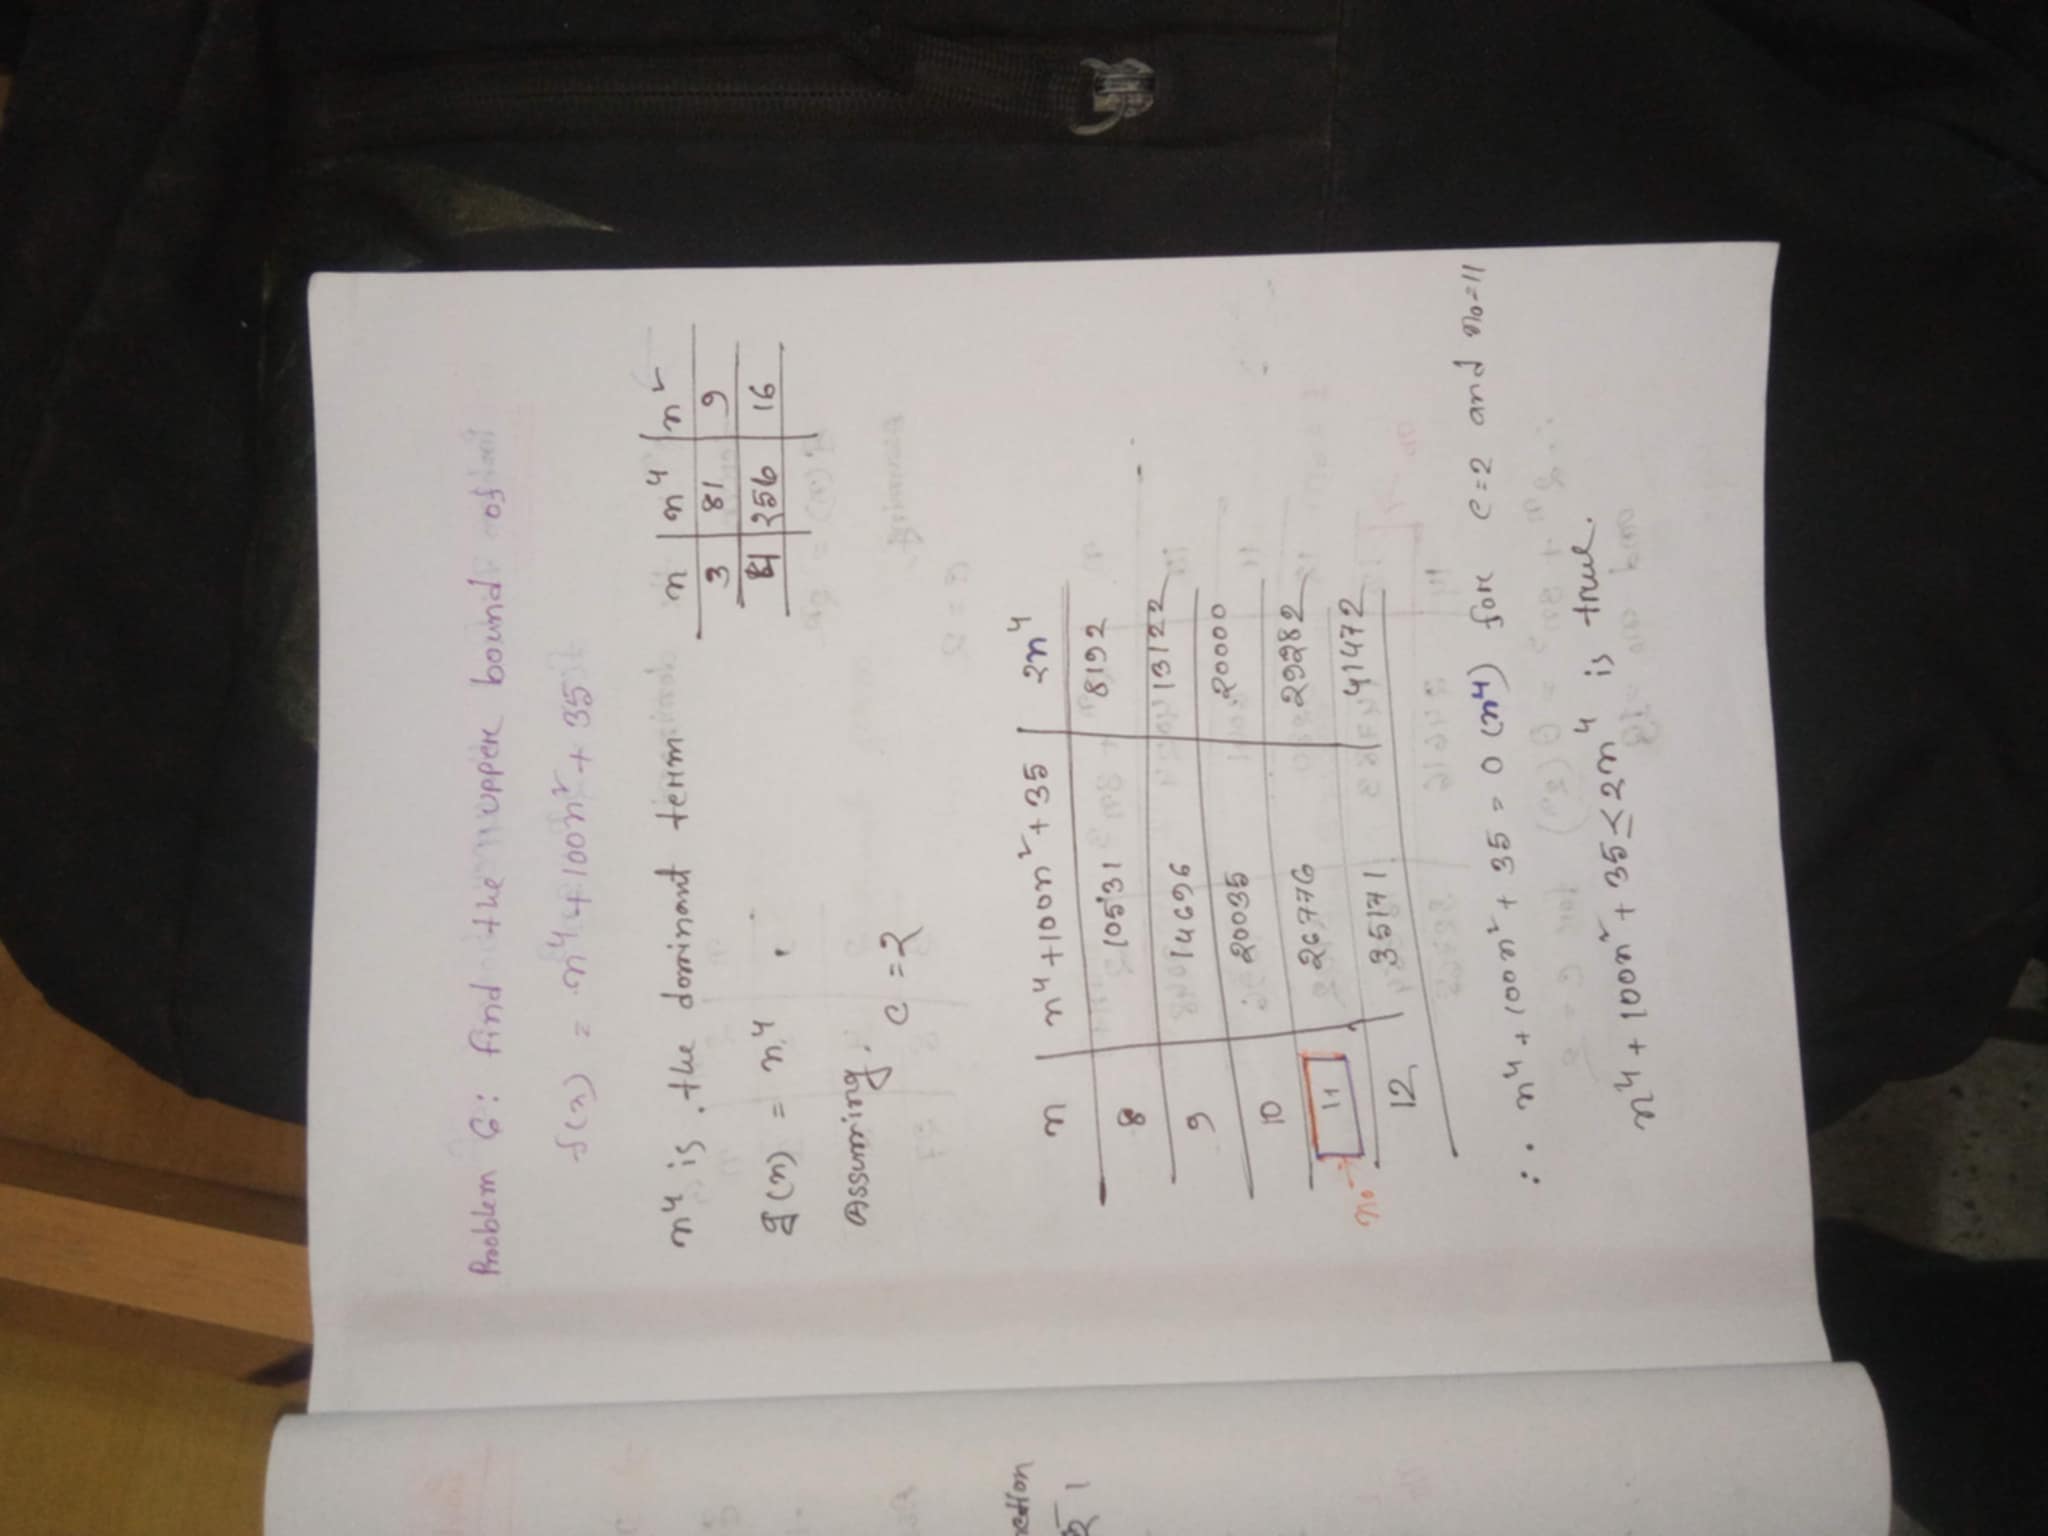 Problem 6: find the upper bound of
f(n) = n⁴ + 100n² + 35
n⁴ is the dominant term
n | n⁴ | n²
3 | 81 | 9
4 | 256 | 16
g(n) = n⁴
Assuming.
c = 2
n | n⁴ + 100n² + 35 | 2n⁴
8 | 10531 | 8192
9 | 14696 | 13122
10 | 20035 | 20000
n₀ → 11 | 26776 | 29282
12 | 35171 | 41472
∴ n⁴ + 100n² + 35 = O(n⁴) for c=2 and n₀=11
n⁴ + 100n² + 35 ≤ 2n⁴ is true.